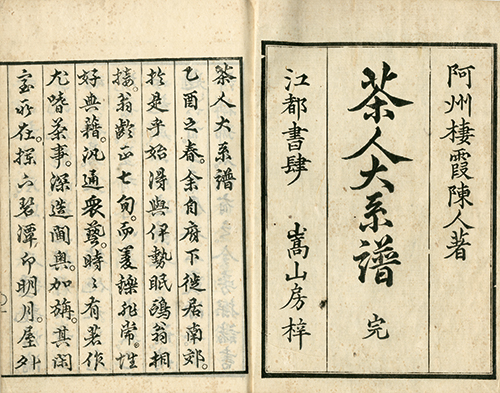 阿州棲霞陳人著
茶人大系譜 完
江都書肆 嵩山房梓
茶人大系譜
乙酉之春。余自府下徙居南郊。
於是乎始得與伊勢眠鷗翁相
接。翁齡正七旬。而矍鑠非常。性
好典籍。汎通衆藝。時時有著作
尤嗜茶事。深造閫奧。加旃其閑
室所在。採六碧潭印明月。屋外